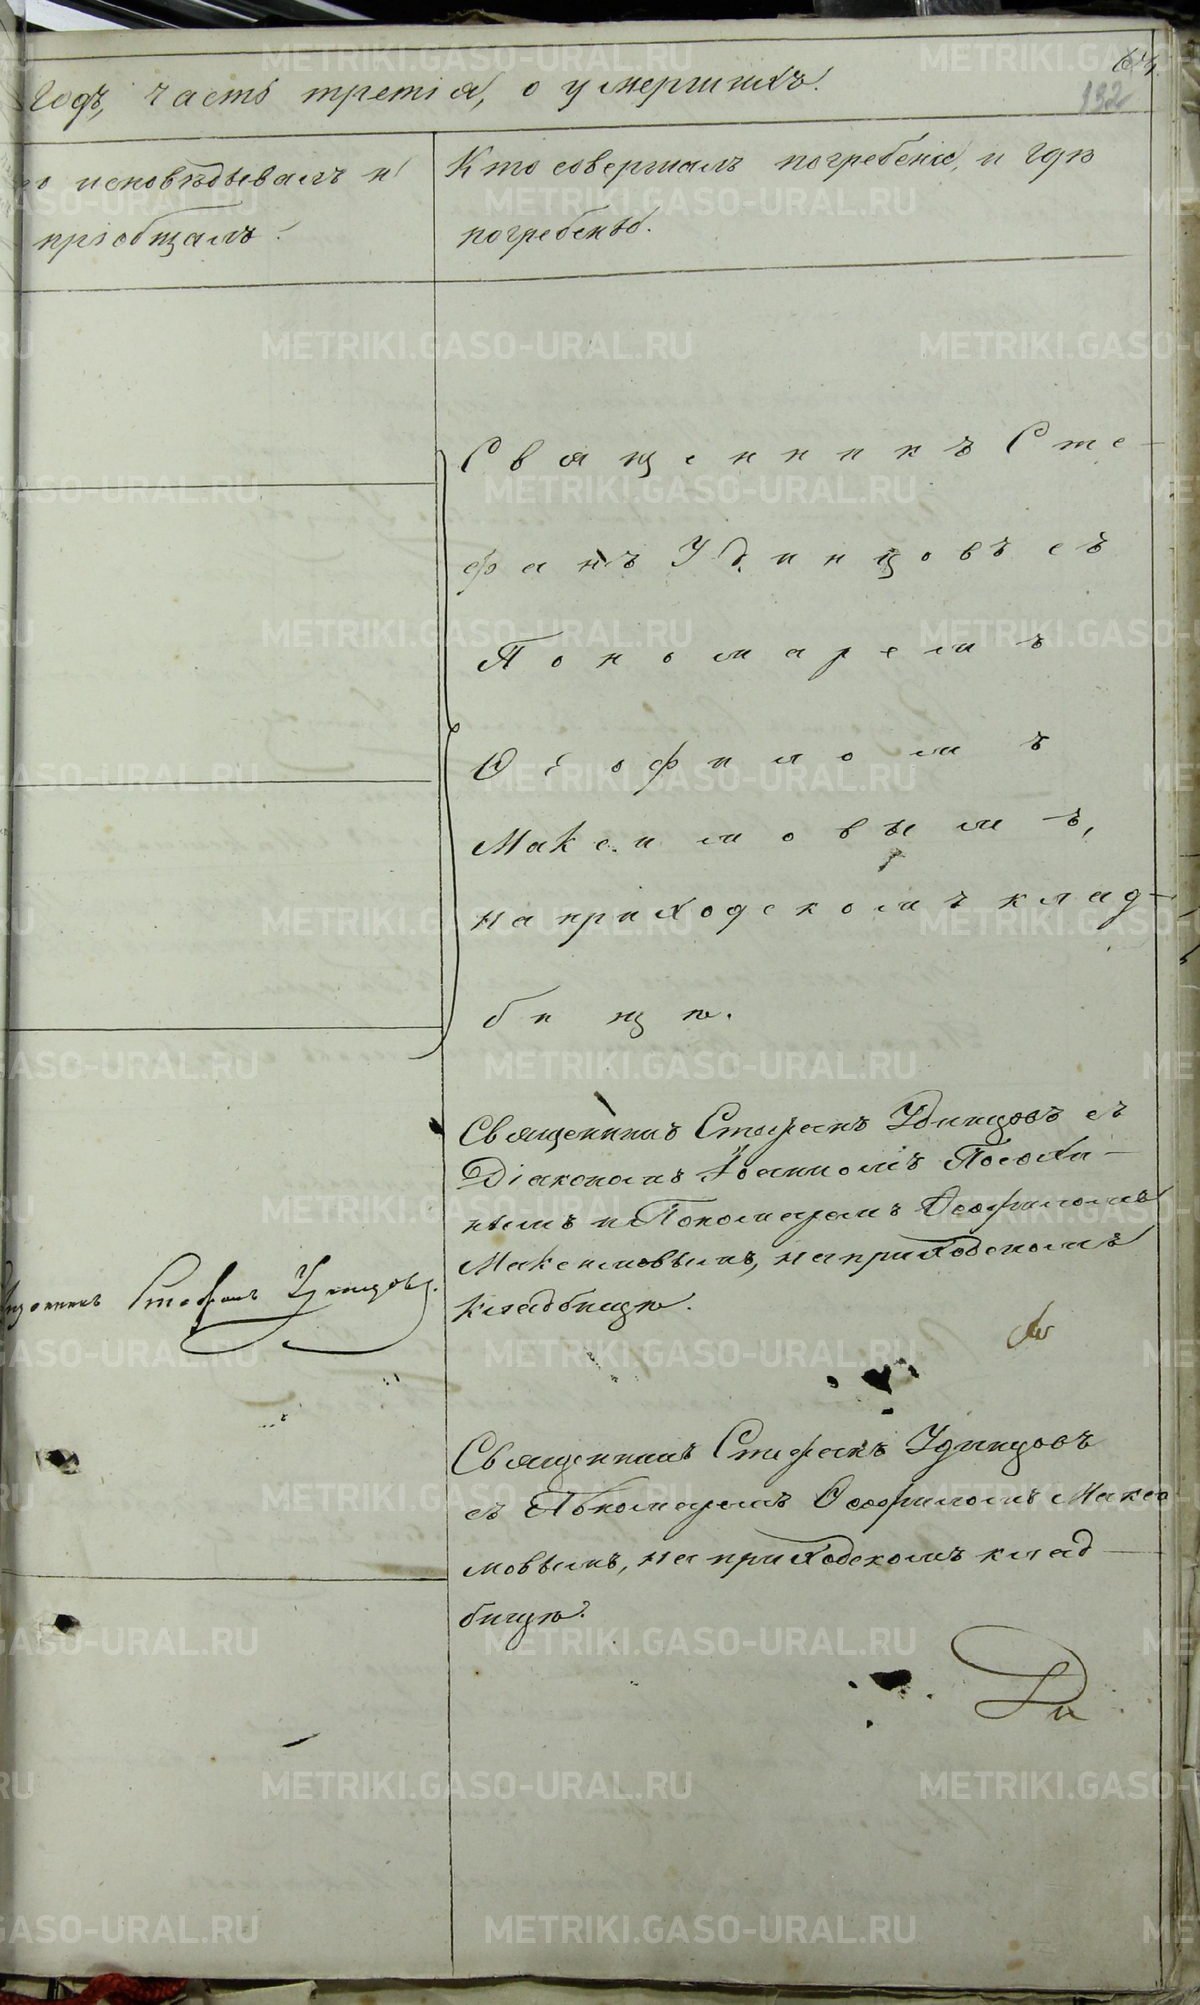 годъ, часть третія, о умершихъ.
64.
132
то исповѣдывалъ и
пріобщалъ.
Кто совершалъ погребеніе, и гдѣ
погребены.
Священникъ Сте-
фанъ Удинцовъ съ
Пономаремъ
Ѳеофиломъ
Максимовымъ,
на приходскомъ клад-
бищѣ.
Священникъ Стефанъ Удинцовъ съ
Діакономъ Іоанномъ
нымъ и Пономаремъ Ѳеофиломъ
Максимовымъ, на приходскомъ
кладбищѣ.
Стефанъ Удинцовъ.
Священникъ Стефанъ Удинцовъ
съ Пономаремъ Ѳеофиломъ Макси
мовымъ, на приходскомъ клад-
бищѣ.
METRIKI.GASO-URAL.RU